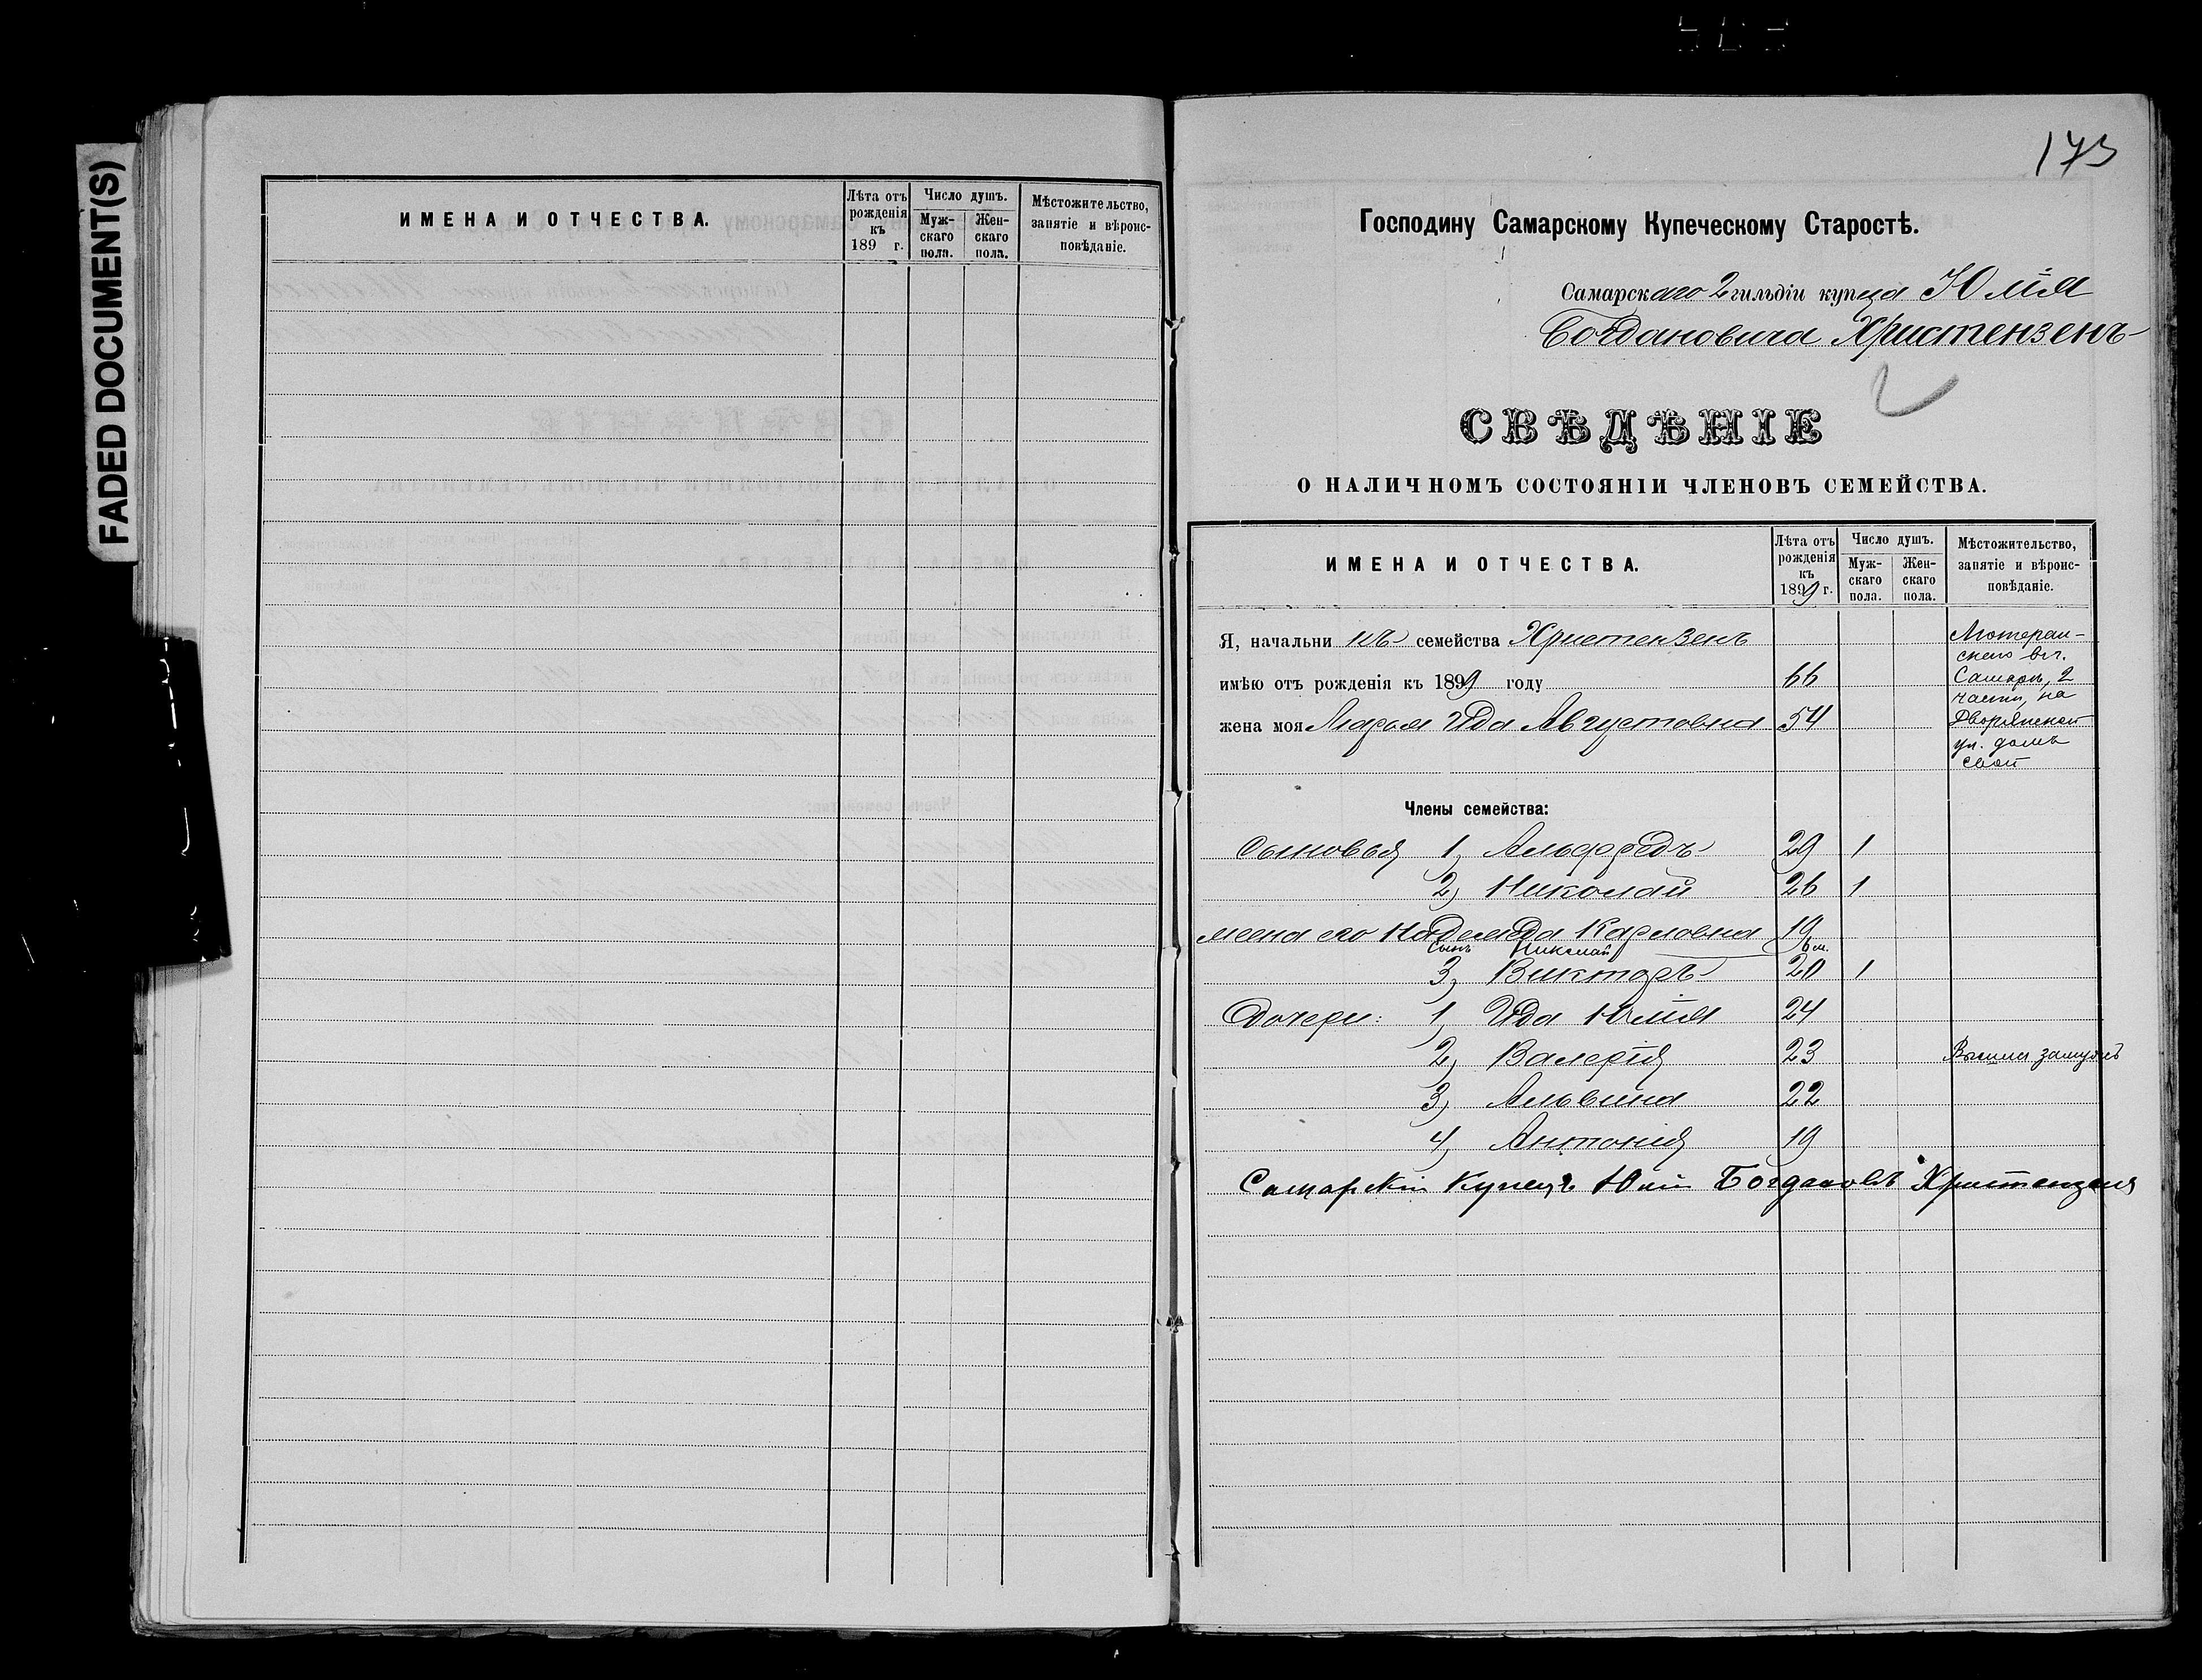 FADED DOCUMENT(S)
ИМЕНА И ОТЧЕСТВА.
Лѣта отъ рожденія къ 189 г.
Число душъ.
Мужскаго пола.
Женскаго пола.
Мѣстожительство, занятіе и вѣроисповѣданіе.
173
Господину Самарскому Купеческому Старостѣ.
Самарскаго 2 гильдіи купца Юлія
Богдановича Христензенъ
СВѢДѢНІЕ
О НАЛИЧНОМЪ СОСТОЯНІИ ЧЛЕНОВЪ СЕМЕЙСТВА.
ИМЕНА И ОТЧЕСТВА.
Лѣта отъ рожденія къ 1899 г.
Число душъ.
Мужскаго пола.
Женскаго пола.
Мѣстожительство, занятіе и вѣроисповѣданіе.
Я, начальникъ семейства Христензенъ
имѣю отъ рожденія къ 1899 году 66
жена моя Марья Ида Августовна 54
Лютеран-
скаго вѣ.
Самара, 2
части, на
Дворянской
ул. домъ
свой
Члены семейства:
Сыновья 1, Альфредъ 29 1
2, Николай 26 1
жена его Надежда Карловна 19
Сынъ Николай 6 м.
3, Викторъ 20 1
Дочери: 1, Ида Юлія 24
2, Валерія 23 Вышла замужъ
3, Альвина 22
4, Антонія 19
Самарскій Купецъ Юлій Богдановъ Христензенъ